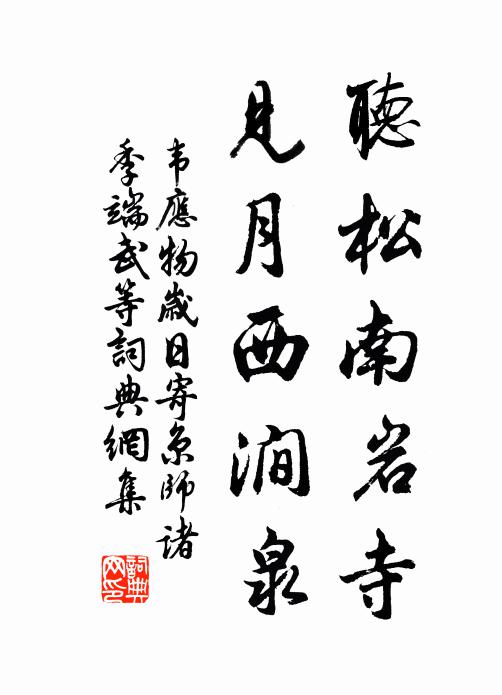 聽松南岩寺
見月西澗泉
韦應物歲日寄京師諸
季端武等詞典網集
詞典網印